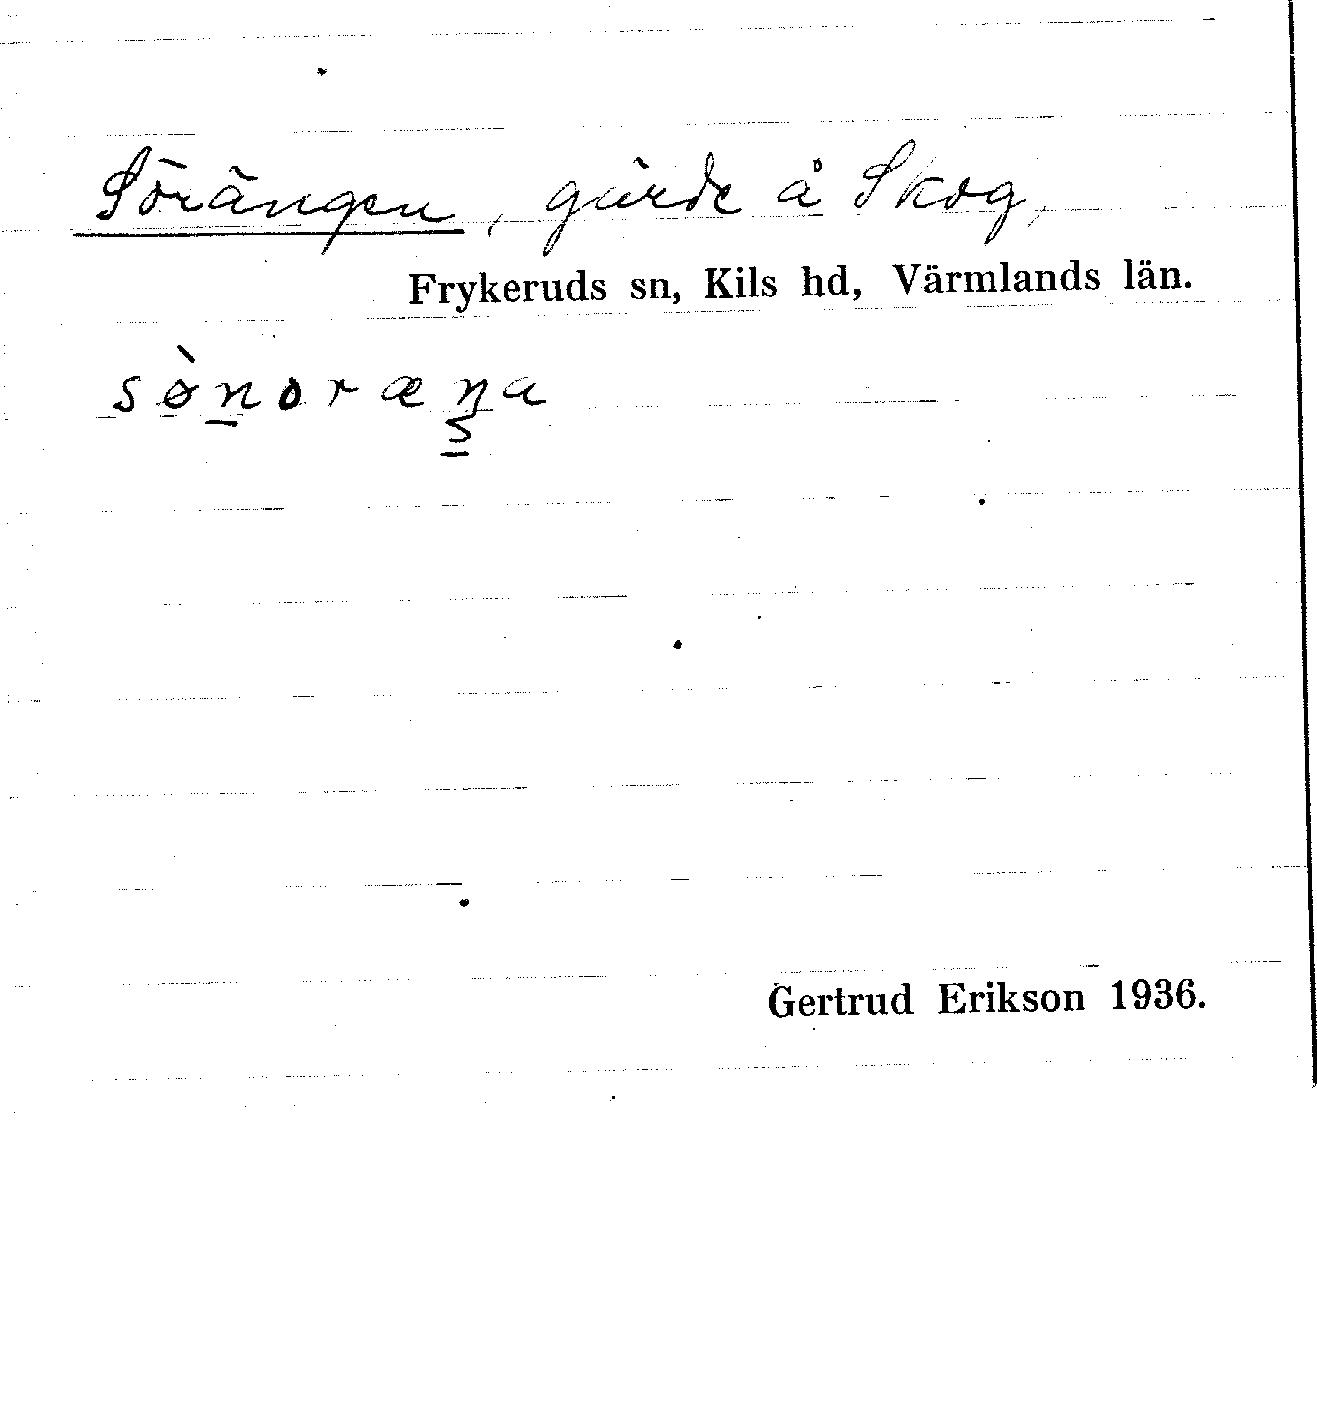 Sörängen, gärde å Skog,
Frykeruds sn, Kils hd, Värmlands län.
sø̀noræŋa
Gertrud Erikson 1936.